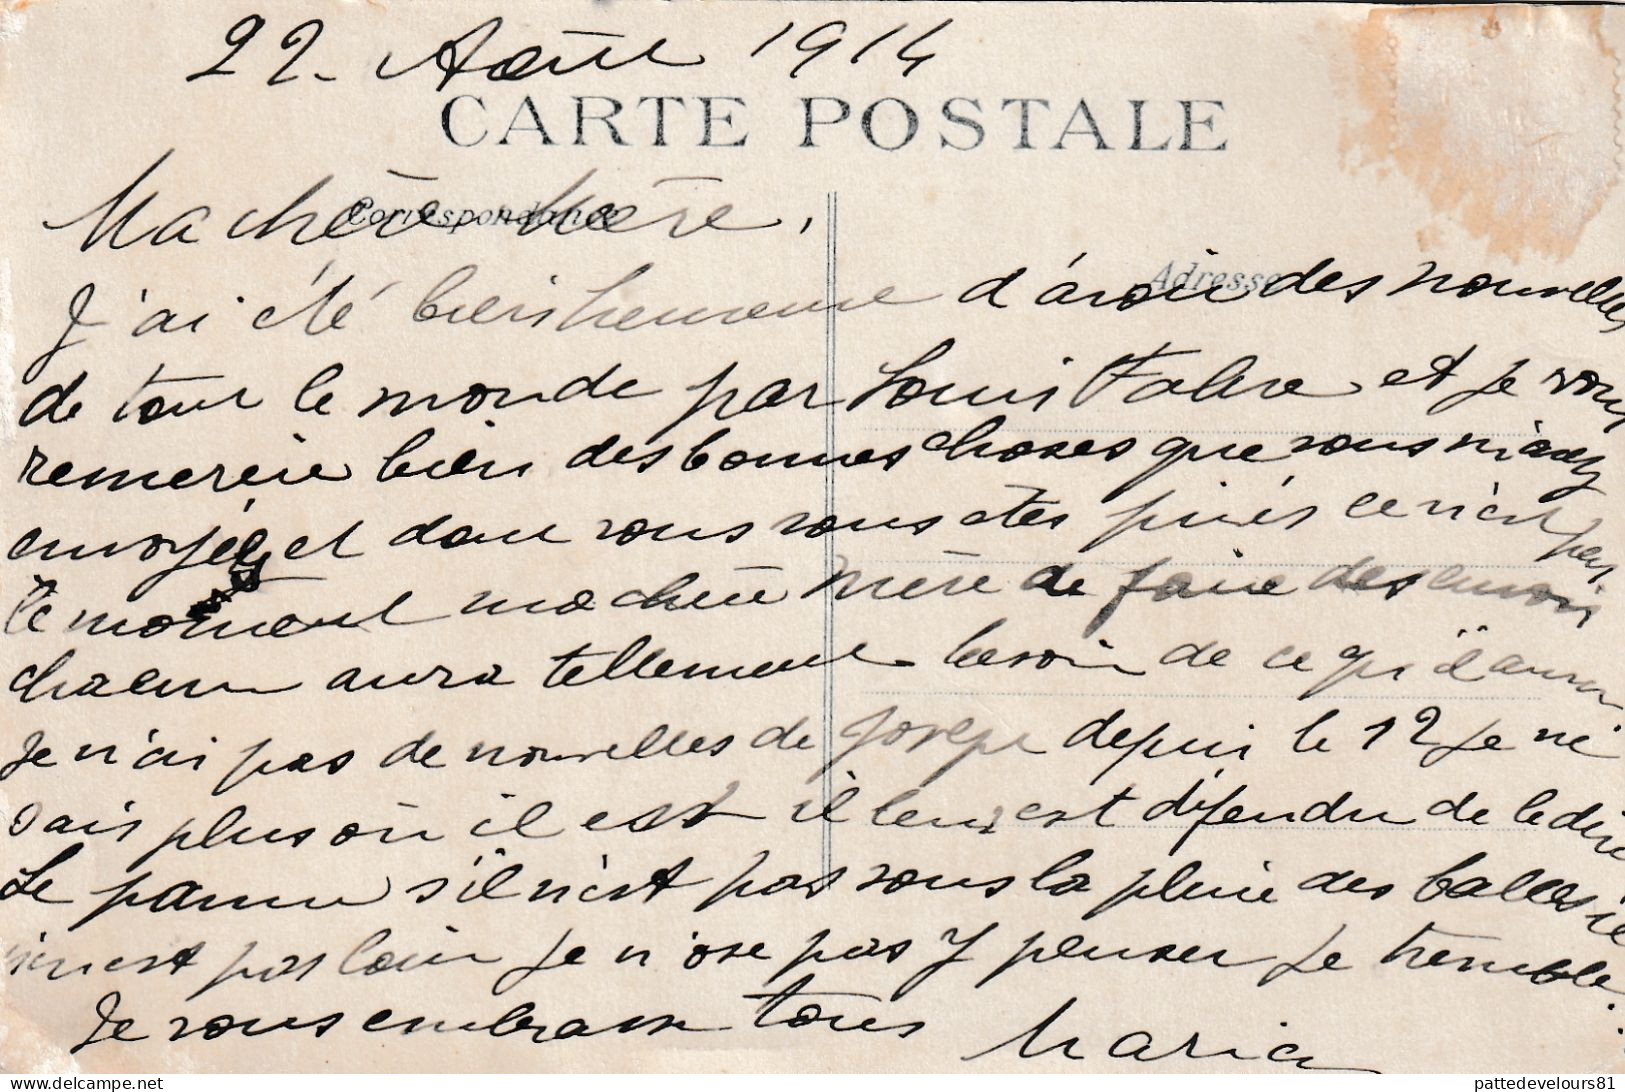 22. Août 1914
CARTE POSTALE
Correspondance
Ma chère Mère,
Adresse
J'ai été bien heureuse d'avoir des nouvelles
de tout le monde par Louis Fabre et je vous
remercie bien des bonnes choses que vous m'avez
envoyées et dont vous vous êtes privés ce n'est pas
le moment ma chère Mère de faire des envois
chacun aura tellement besoin de ce qu'il aura
Je n'ai pas de nouvelles de Joseph depuis le 12 je ne
sais plus où il est il leur est défendu de le dire
Le pauvre s'il n'est pas sous la pluie des balles il
n'en est pas loin je n'ose pas y penser je tremble.
Je vous embrasse tous
Maria
pattedevelours81